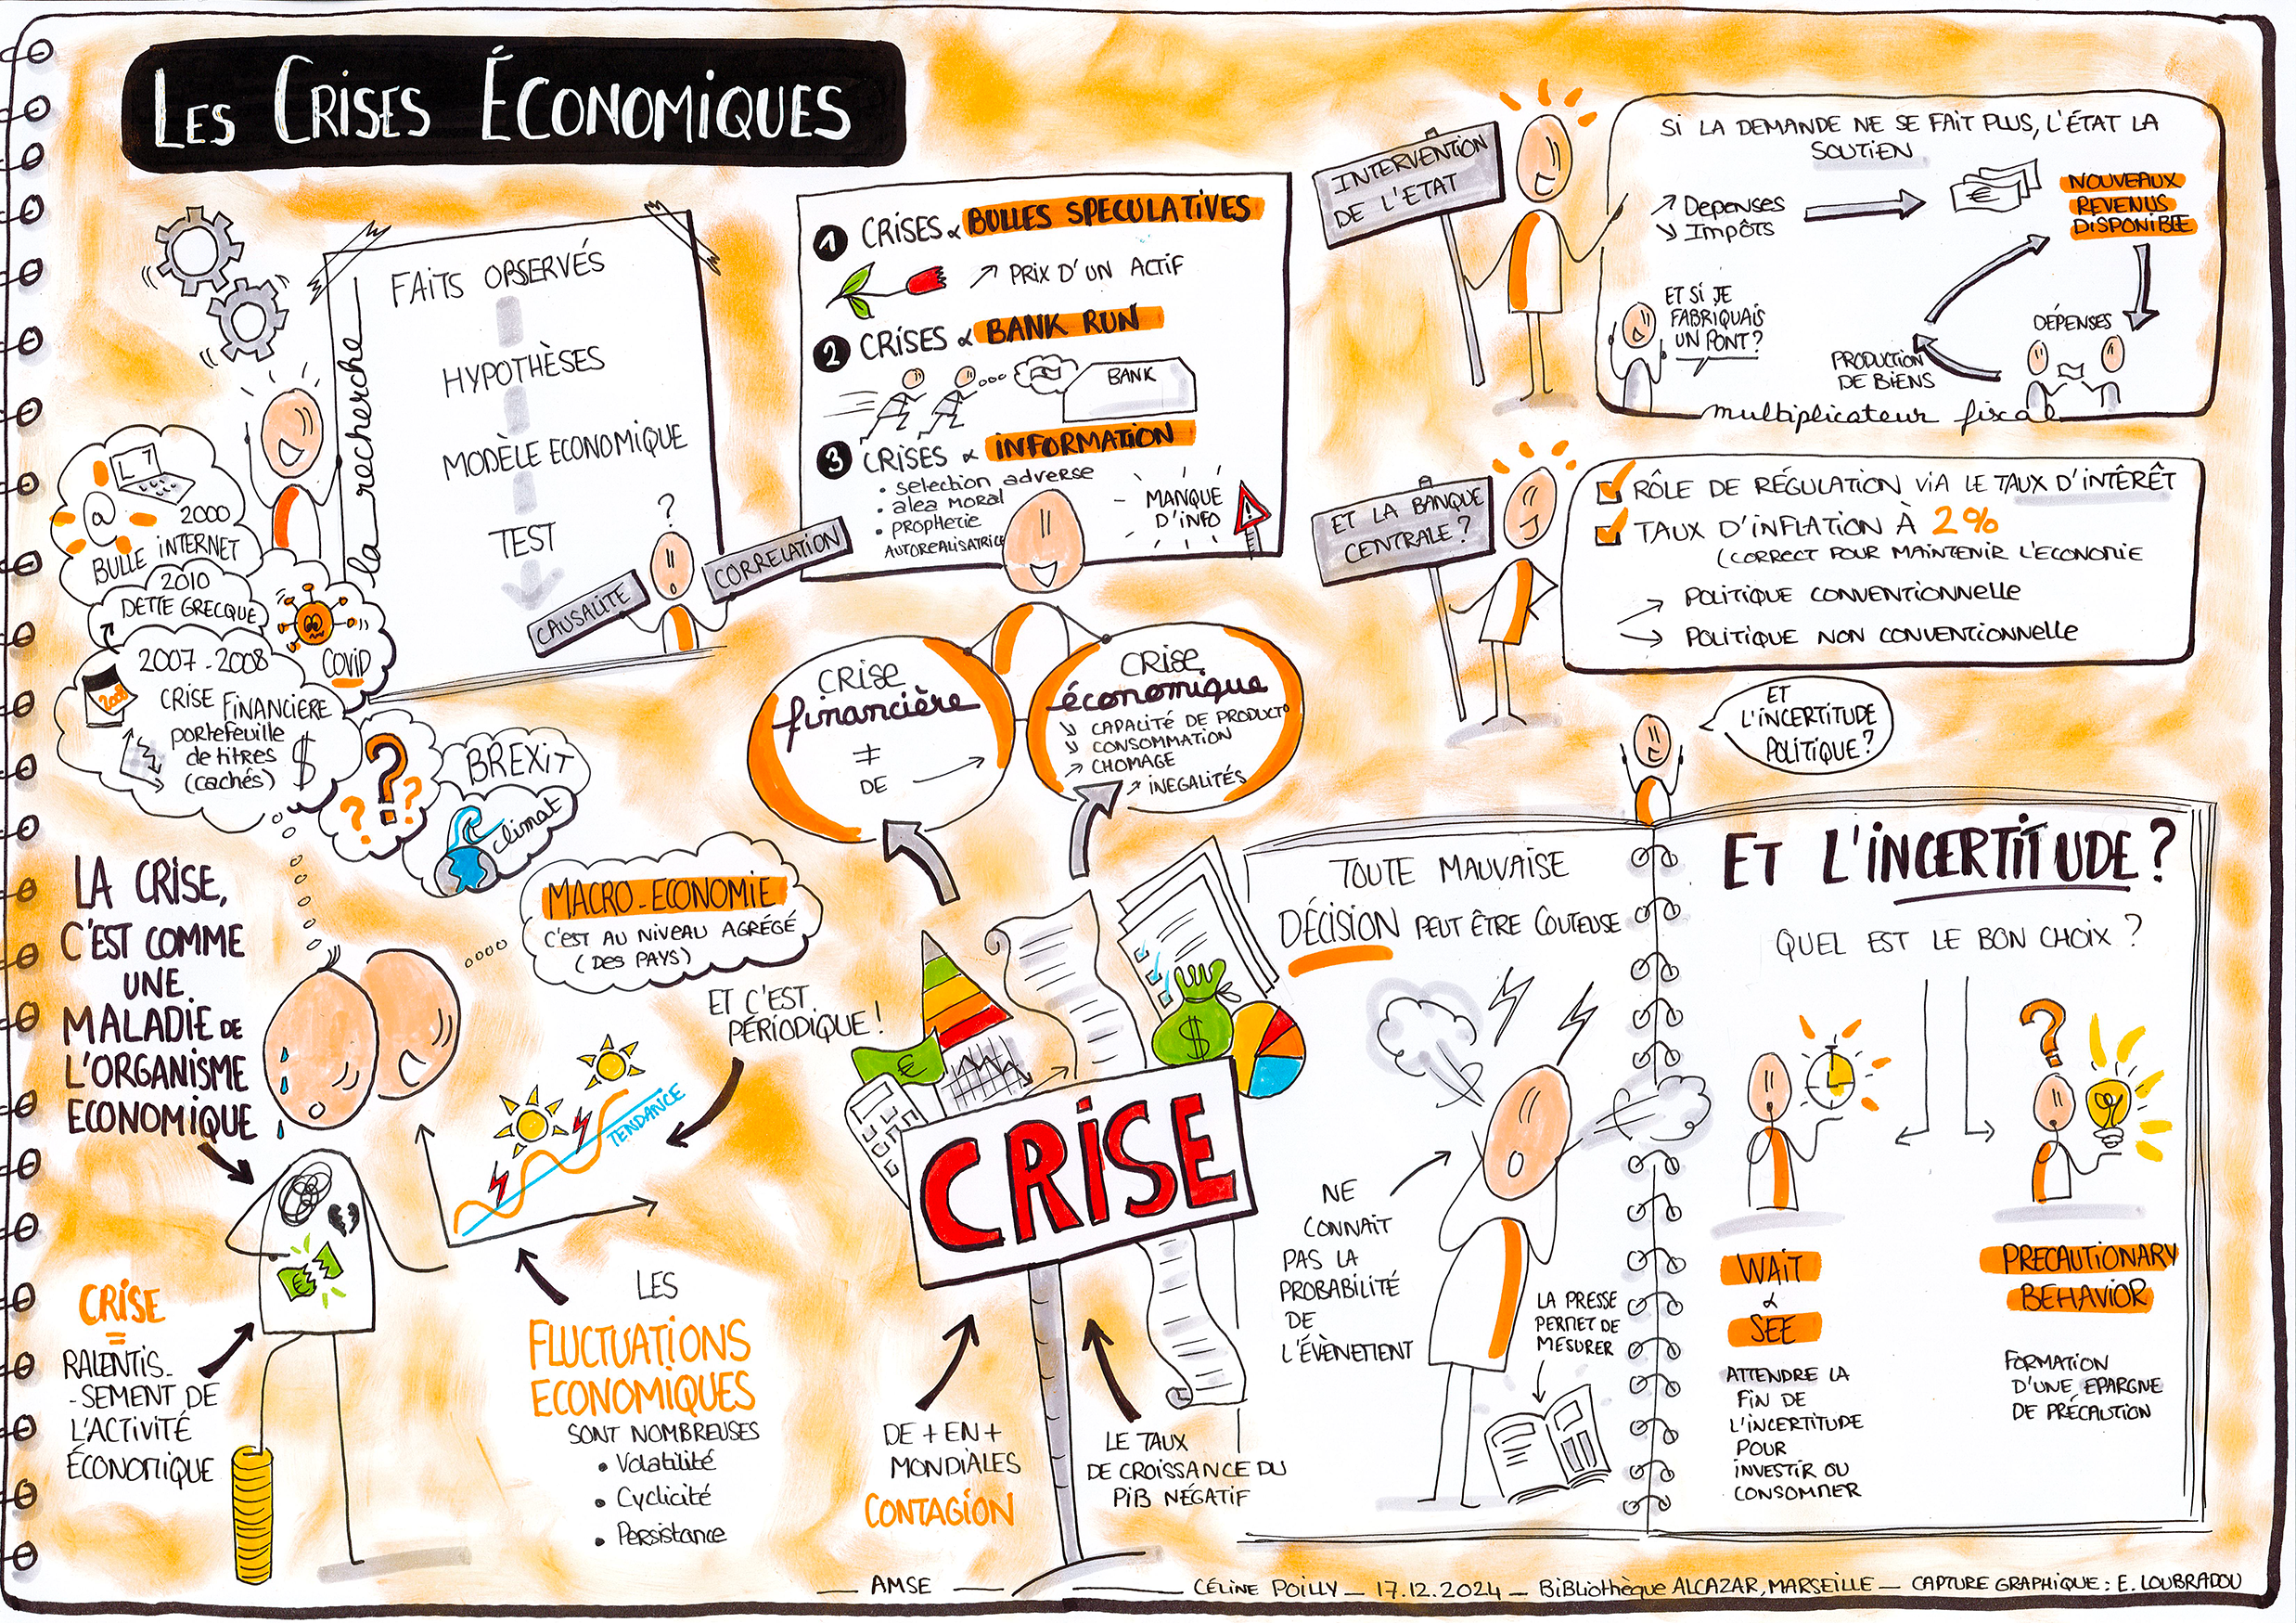 LES CRISES ÉCONOMIQUES
la recherche
FAITS OBSERVÉS
HYPOTHÈSES
MODÈLE ECONOMIQUE
TEST
?
CAUSALITE
CORRELATION
1 CRISES & BULLES SPECULATIVES
↗ PRIX D'UN ACTIF
2 CRISES & BANK RUN
BANK
3 CRISES & INFORMATION
• selection adverse
• alea moral
• prophetie
AUTOREALISATRICE
MANQUE
D'INFO
INTERVENTION
DE L'ETAT
SI LA DEMANDE NE SE FAIT PLUS, L'ÉTAT LA
SOUTIEN
↗ Depenses
↘ Impôts
€
NOUVEAUX
REVENUS
DISPONIBLE
ET SI JE
FABRIQUAIS
UN PONT?
DÉPENSES
PRODUCTION
DE BIENS
multiplicateur fiscal
ET LA BANQUE
CENTRALE?
RÔLE DE RÉGULATION VIA LE TAUX D'INTÊRÊT
TAUX D'INFLATION À 2%
(CORRECT POUR MAINTENIR L'ECONOMIE
→ POLITIQUE CONVENTIONNELLE
→ POLITIQUE NON CONVENTIONNELLE
@
2000
BULLE INTERNET
2010
DETTE GRECQUE
COVID
2007-2008
2008
CRISE FINANCIERE
portefeuille
de titres
(cachés)
$
? ? ?
BREXIT
climat
CRISE
financière
≠
DE →
CRISE
économique
↘ CAPALITÉ DE PRODUCT°
↘ CONSOMMATION
↗ CHOMAGE
↗ INEGALITÉS
LA CRISE,
C'EST COMME
UNE
MALADIE DE
L'ORGANISME
ECONOMIQUE
MACRO-ECONOMIE
C'EST AU NIVEAU AGRÉGÉ
(DES PAYS)
ET C'EST
PÉRIODIQUE!
TENDANCE
€
CRISE
=
RALENTIS-
-SEMENT DE
L'ACTIVITÉ
ÉCONOMIQUE
LES
FLUCTUATIONS
ECONOMIQUES
SONT NOMBREUSES
• Volatilité
• Cyclicité
• Persistance
€
$
CRISE
DE + EN +
MONDIALES
CONTAGION
LE TAUX
DE CROISSANCE DU
PIB NÉGATIF
ET
L'INCERTITUDE
POLITIQUE?
TOUTE MAUVAISE
DÉCISION PEUT ÊTRE COUTEUSE
NE
CONNAIT
PAS LA
PROBABILITÉ
DE
L'ÉVÈNEMENT
LA PRESSE
PERMET DE
MESURER
ET L'INCERTITUDE?
QUEL EST LE BON CHOIX?
?
WAIT
&
SEE
ATTENDRE LA
FIN DE
L'INCERTITUDE
POUR
INVESTIR OU
CONSOMMER
PRECAUTIONARY
BEHAVIOR
FORMATION
D'UNE EPARGNE
DE PRÉCAUTION
— AMSE — CÉLINE POILLY — 17.12.2024 — BIBLIOTHÈQUE ALCAZAR, MARSEILLE — CAPTURE GRAPHIQUE: E. LOUBRADOU